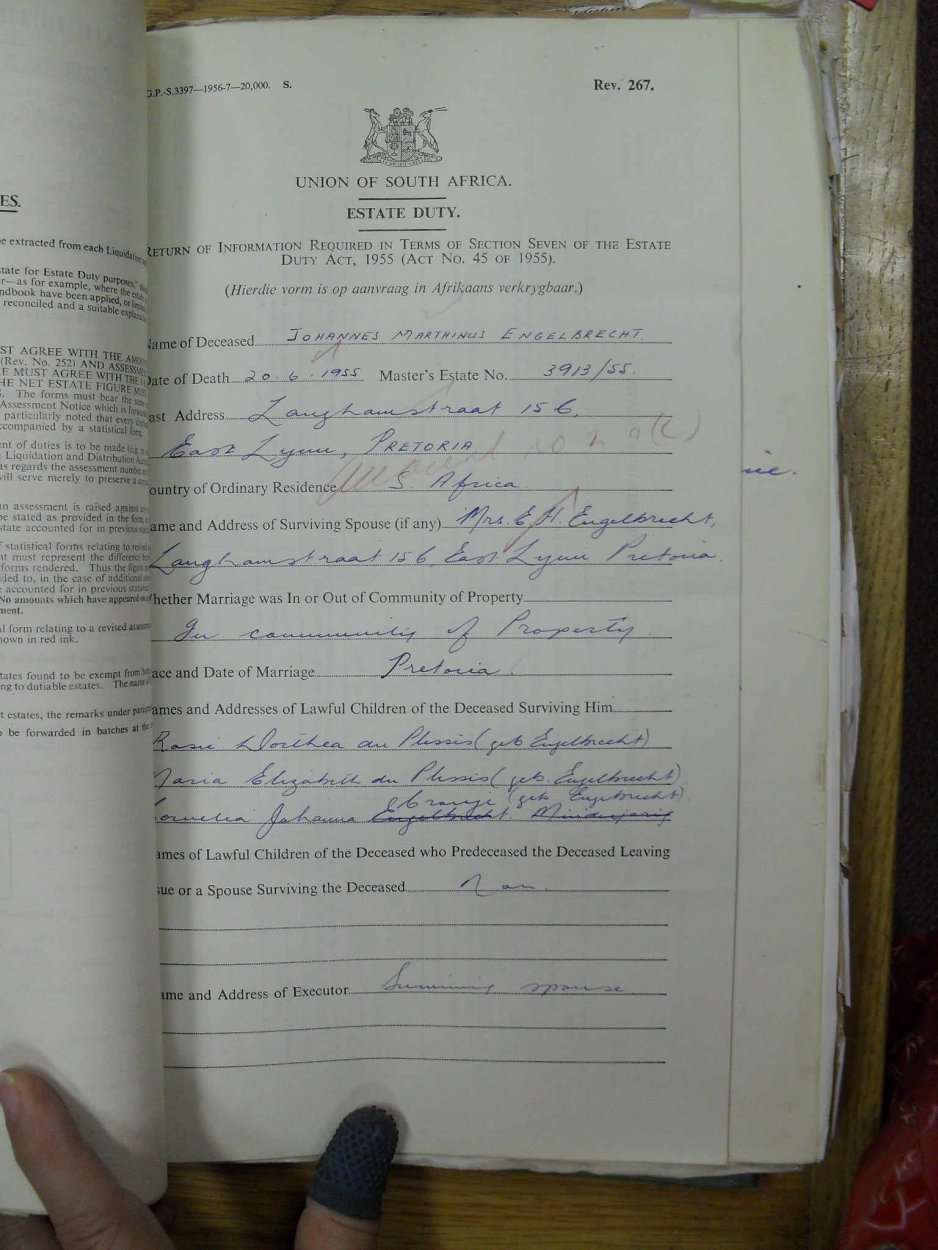 G.P.-S.3397—1956-7—20,000. S.
Rev. 267.
UNION OF SOUTH AFRICA.
ESTATE DUTY.
RETURN OF INFORMATION REQUIRED IN TERMS OF SECTION SEVEN OF THE ESTATE
DUTY ACT, 1955 (ACT No. 45 OF 1955).
(Hierdie vorm is op aanvraag in Afrikaans verkrygbaar.)
Name of Deceased JOHANNES MARTHINUS ENGELBRECHT.
Date of Death 20.6.1955 Master's Estate No. 3913/55.
Last Address Langhamstraat 156,
East Lynn, PRETORIA
Country of Ordinary Residence S. Africa.
Name and Address of Surviving Spouse (if any) Mrs. E.H. Engelbrecht,
Langhamstraat 156, East Lynn Pretoria.
Whether Marriage was In or Out of Community of Property
In community of Property.
Place and Date of Marriage Pretoria.
Names and Addresses of Lawful Children of the Deceased Surviving Him
Rosie Dorthea du Plessis (geb Engelbrecht)
Maria Elizabeth du Plessis (geb. Engelbrecht)
(geb Engelbrecht).
Cornelia Johanna Engelbrecht. Minderjarig
Names of Lawful Children of the Deceased who Predeceased the Deceased Leaving
Issue or a Spouse Surviving the Deceased
Name and Address of Executor Surviving spouse
ES.
be extracted from each Liquidation
state for Estate Duty purposes,
r—as for example, where the
ndbook have been applied, or
reconciled and a suitable
ST AGREE WITH THE
(Rev. No. 252) AND
E MUST AGREE WITH THE
HE NET ESTATE FIGURE
The forms must bear the
Assessment Notice which is
particularly noted that every
ccompanied by a statistical form,
ent of duties is to be made (e.g.
Liquidation and Distribution
as regards the assessment number
will serve merely to preserve a
an assessment is raised against
be stated as provided in the form,
state accounted for in previous
f statistical forms relating to
nt must represent the difference
forms rendered. Thus the figure
ded to, in the case of additional
accounted for in previous
No amounts which have appeared
ment.
al form relating to a revised
hown in red ink.
tates found to be exempt from
ng to dutiable estates. The name
t estates, the remarks under
o be forwarded in batches at the